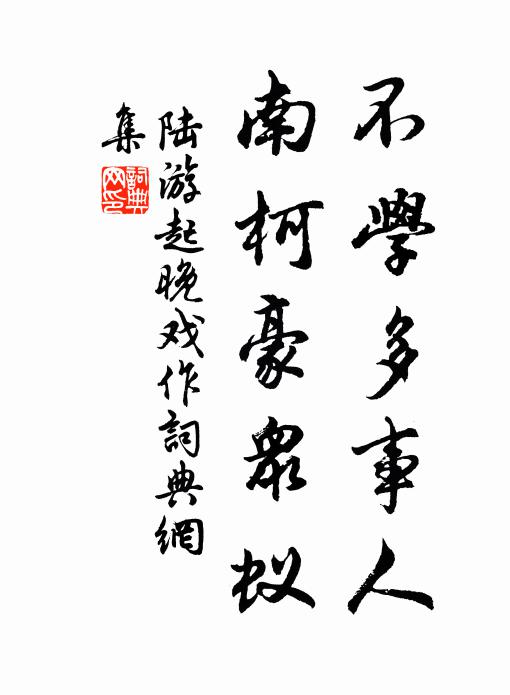 不學多事人
南柯豪眾蚁
陆游起晚戏作詞典網
集
詞典
网印